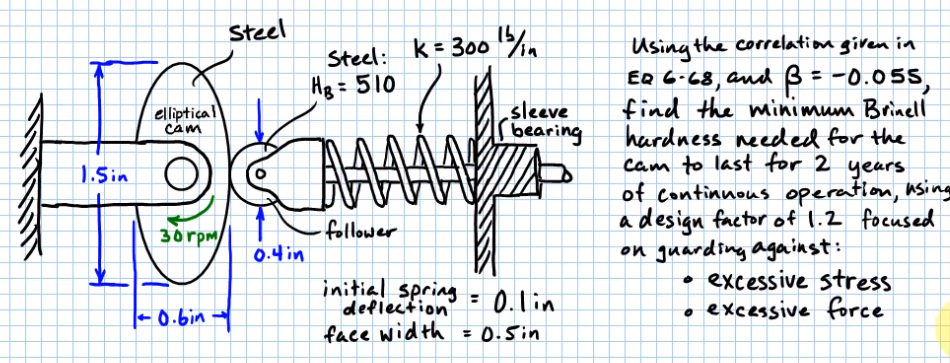 Steel
Steel:
HB = 510
K = 300 lb/in
elliptical
cam
sleeve
bearing
1.5in
30 rpm
follower
0.4in
0.6in
initial spring
deflection = 0.1in
face width = 0.5in
Using the correlation given in
EQ 6-68, and β = -0.055,
find the minimum Brinell
hardness needed for the
cam to last for 2 years
of continuous operation, using
a design factor of 1.2 focused
on guarding against:
• excessive stress
• excessive force